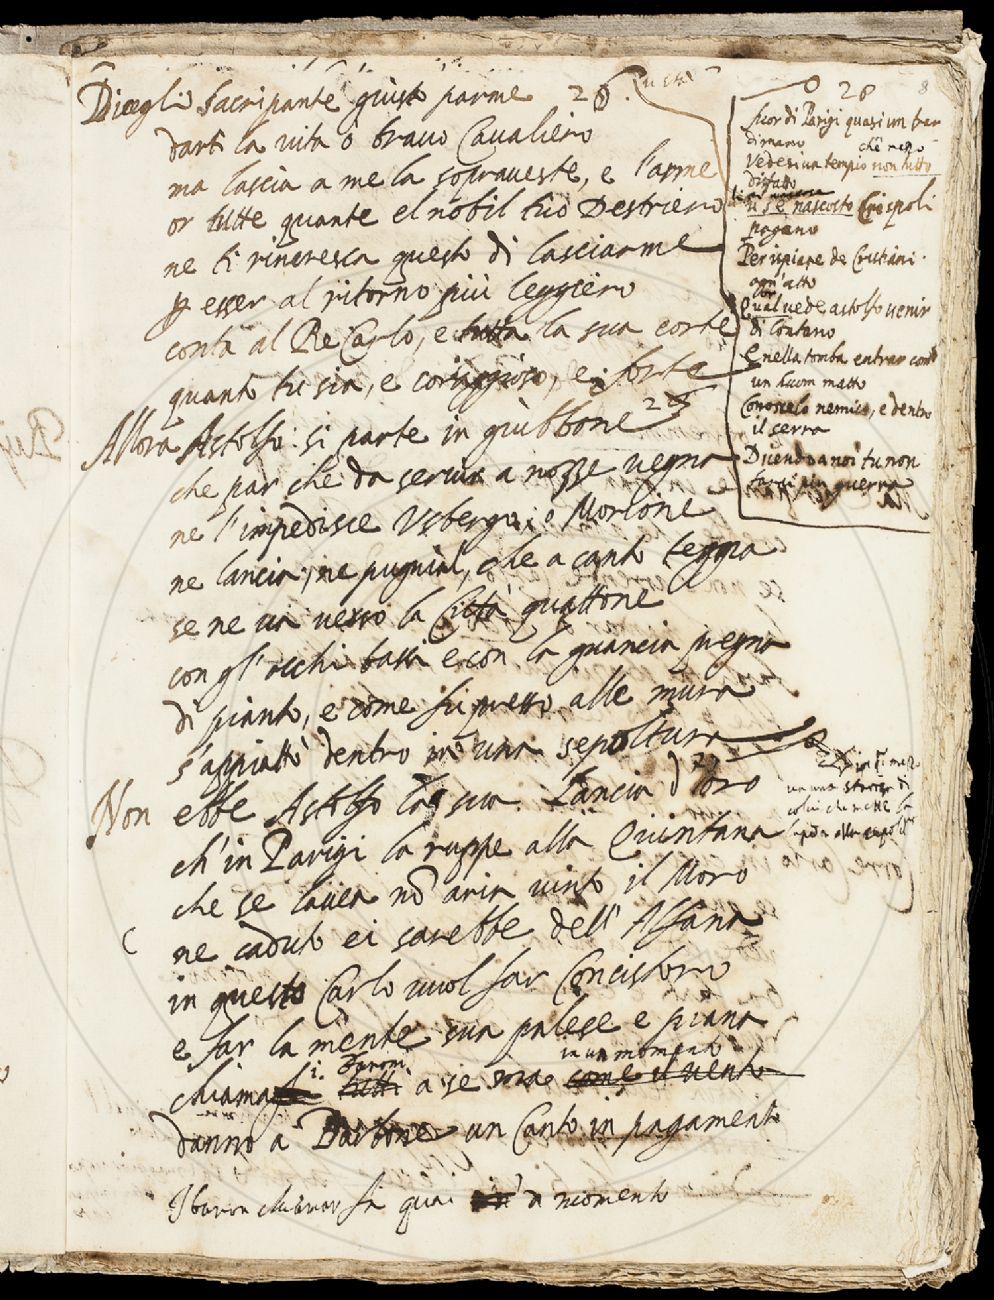 Dicegli Sacripante giusto parme 26
darti la vita o bravo Cavaliero
ma lascia a me la sopraveste, e l'arme
or tutte quante el nobil tuo Destriero
ne ti rincresca questo dì lasciarme
p esser al ritorno più leggiero
conta al Re Carlo, e tutta la sua corte
quanto tu sia, e coraggioso, e forte
Allora Astolfo si parte in giubbone
che par che da servire a nozze vegna
ne l'impedisce Usbergo, o Morione
ne lancia, ne pugnial, che a canto tegna
se ne va verso la Città guattone
con gl'occhi bassi e con la guancia pregna
di pianto, e come fu presso alle mura
s'appiattò dentro in una sepoltura
27
Non ebbe Astolfo la sua Lancia d'oro
ch'in Parigi la ruppe alla Quintana
che se l'avea nõ aria vinto il Moro
ne caduto ei sarebbe dell'Alfana
in questo Carlo vuol far Concistoro
e far la mente sua palese e piana
in un momento
chiama i Baroni tutti a se come il vento
danno a un Canto in pagamento
I baron chiamar fa quai in da momento
28
8
fuor di Parigi quasi un trar
di mano
che mezo
Vedesi un tempio non tutto
disfatto
u s'è nascosto Crispoli
pagano
Per ispiare de Cristiani
ogn'atto
Qual vede Astolfo venir
di lontano
E nella tomba entrar com'
un huom matto
Conoscelo nemico, e dentro
il serra
Dicendo a noi tu non
farai più guerra
una di
colui che mette la